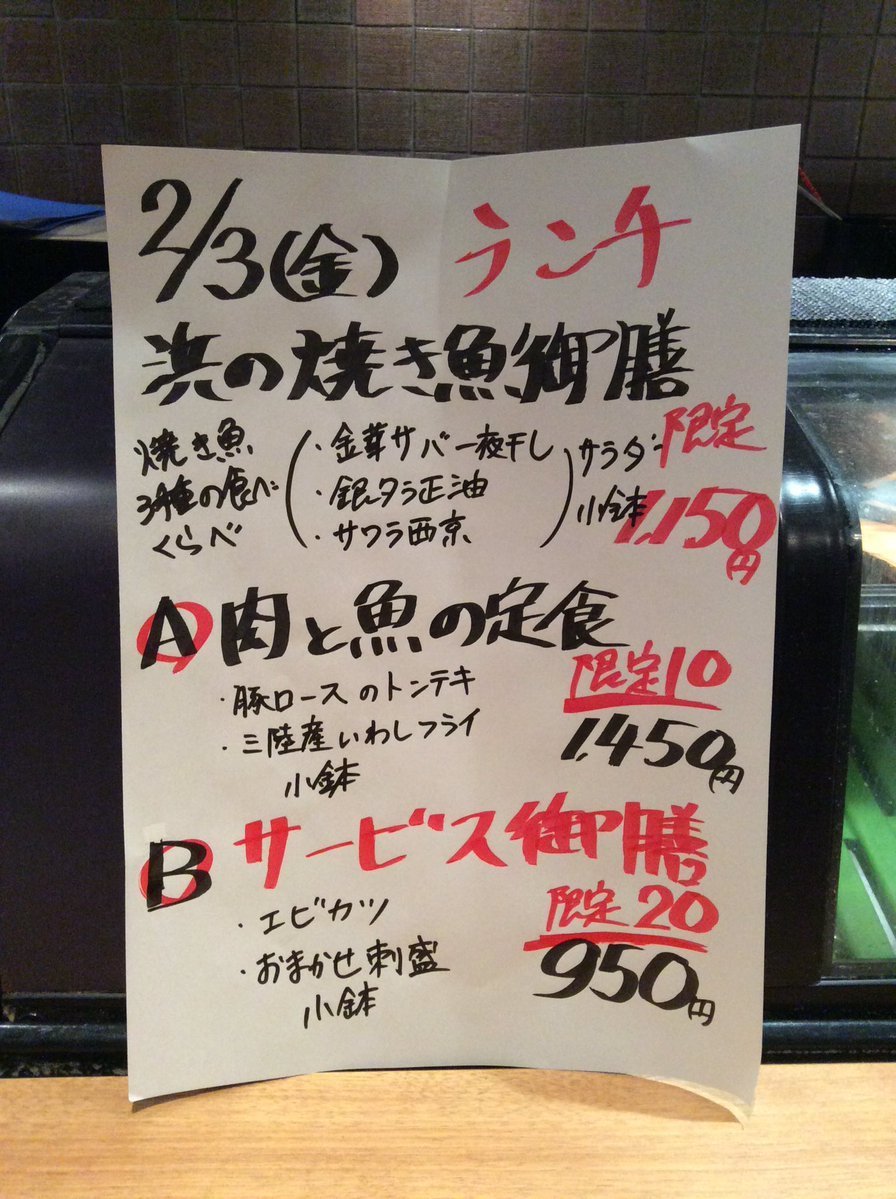 2/3(金) ランチ
浜の焼き魚御膳
焼き魚
3種の食べ
くらべ
・金華サバ一夜干し
・銀タラ正油
・サワラ西京
サラダ
小鉢
限定
1,150円
A 肉と魚の定食
・豚ロースのトンテキ
・三陸産いわしフライ
小鉢
限定10
1,450円
B サービス御膳
・エビカツ
・おまかせ刺盛
小鉢
限定20
950円